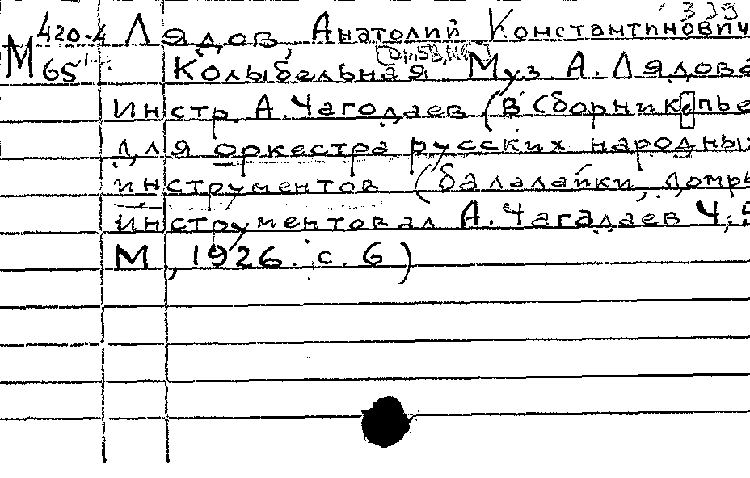 339
420-4 Лядов, Анатолий Константинович
М 65 Колыбельная Муз А. Лядова
Инстр. А. Чагодаев (в Сборнике пье
для оркестра русских народны
инструментов (балалайки, домры
инструментовал А. Чагадаев Ч.5
М, 1926. с. 6)